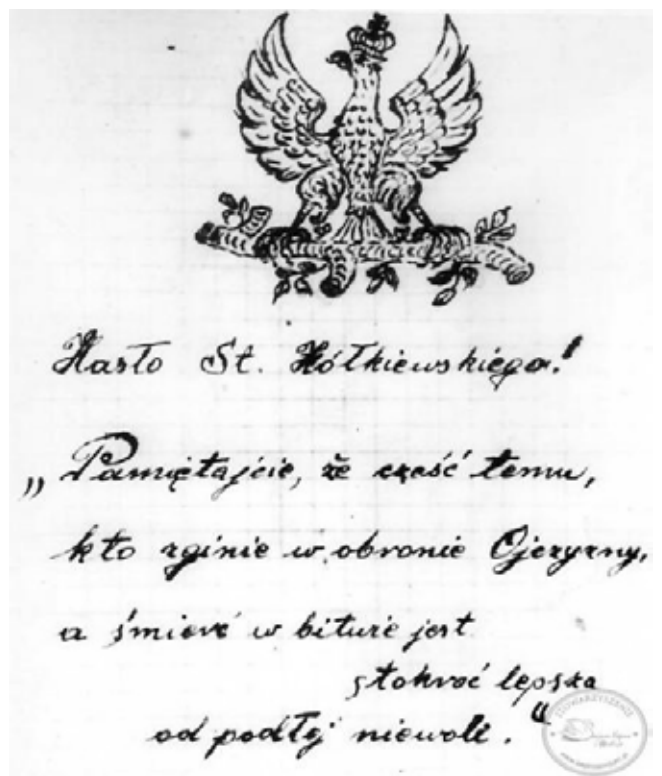 Hasło St. Żółkiewskiego!
„Pamiętajcie, że cześć temu,
kto zginie w obronie Ojczyzny,
a śmierć w bitwie jest
stokroć lepsza
od podłej niewoli."
STOWARZYSZENIE